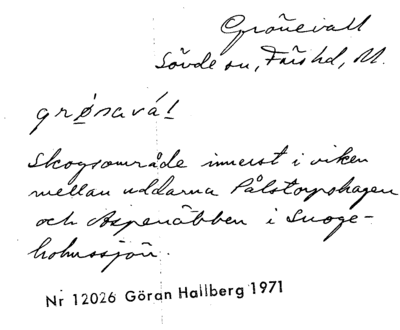 Grönevall
Sövde sn, Färs hd, M.
grǿnavá!
Skogsområde innerst i viken
mellan uddarna Pålstorpshagen
och Aspenäbben i Snoge-
holmssjön.
Nr 12026 Göran Hallberg 1971